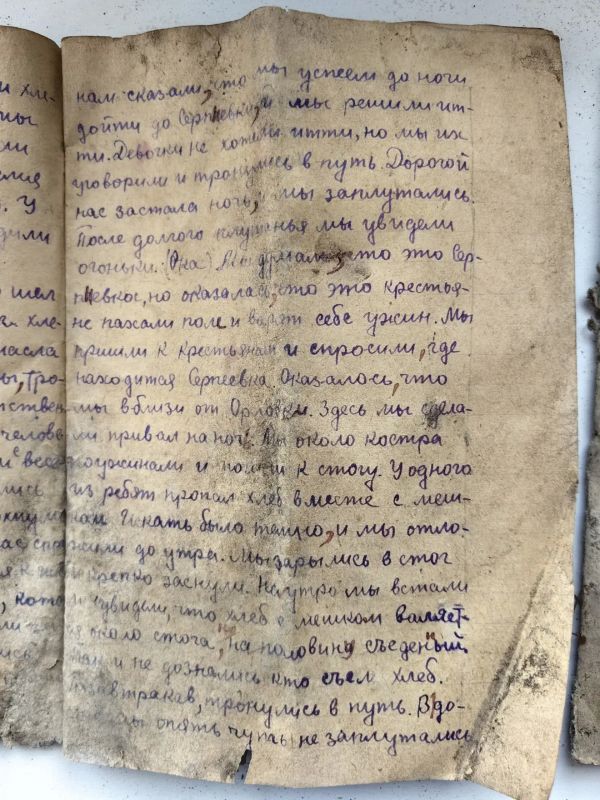 и хле-
ны
У
дили
шел
хле-
масла
ы, тро-
ствен
челове
и с все
лись
кото
нам сказали, что мы успеем до ночи
дойти до Сергиевки, и мы решили ит-
ти. Девочки не хотели итти, но мы их
уговорили и тронулись в путь. Дорогой
нас застала ночь, и мы заплутались.
После долгого плутанья мы увидели
огоньки. (Ока) Мы думали, что это Сер-
гиевка, но оказалась, что это крестья-
не пахали поле и варят себе ужин. Мы
пришли к крестьянам и спросили, где
находится Сергеевка. Оказалось, что
мы вблизи от Орловки. Здесь мы сдела-
ли привал на ночь. Мы около костра
поужинали и пошли к стогу. У одного
из ребят пропал хлеб вместе с меш-
ком. Искать было темно, и мы отло-
жили до утра. Мы зарылись в стог
и крепко заснули. На утро мы встали
и увидели, что хлеб с мешком валяет-
ся около стога, на половину съеденый.
Так и не дознались кто съел хлеб.
Позавтракав, тронулись в путь. В до-
опять чуть не заплутались